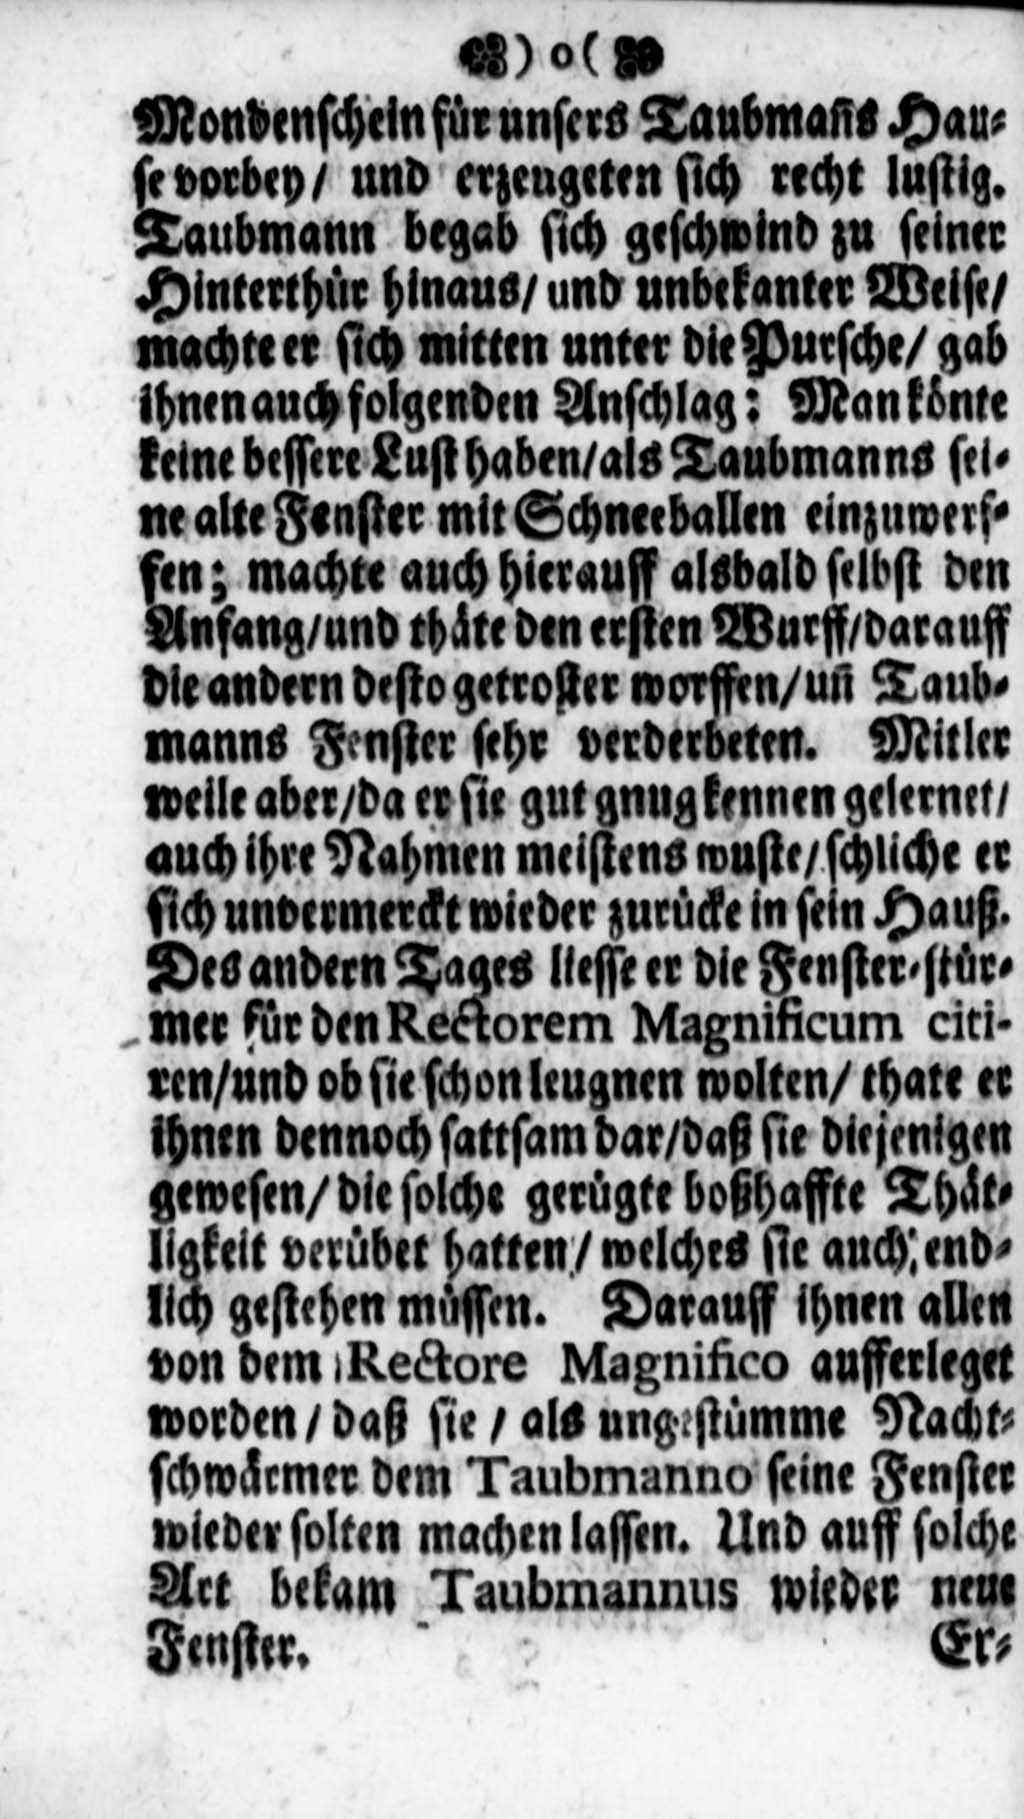 ) o (
Mondenschein für unsers Taubmañs Hau-
se vorbey/ und erzeugeten sich recht lustig.
Taubmann begab sich geschwind zu seiner
Hinterthür hinaus/ und unbekanter Weise/
machte er sich mitten unter die Pursche/ gab
ihnen auch folgenden Anschlag: Man könte
keine bessere Lust haben/als Taubmanns sei-
ne alte Fenster mit Schneeballen einzuwerf-
fen; machte auch hierauff alsbald selbst den
Anfang/und thäte den ersten Wurff/darauff
die andern desto getroster worffen/uñ Taub-
manns Fenster sehr verderbeten. Mitler
weile aber/da er sie gut gnug kennen gelernet/
auch ihre Nahmen meistens wuste/ schliche er
sich unvermerckt wieder zurücke in sein Hauß.
Des andern Tages liesse er die Fenster-stür-
mer für den Rectorem Magnificum citi-
ren/und ob sie schon leugnen wolten/ thate er
ihnen dennoch sattsam dar/daß sie diejenigen
gewesen/ die solche gerügte boßhaffte Thät-
ligkeit verübet hatten/ welches sie auch end-
lich gestehen müssen. Darauff ihnen allen
von dem Rectore Magnifico aufferleget
worden/ daß sie/ als ungestümme Nacht-
schwärmer dem Taubmanno seine Fenster
wieder solten machen lassen. Und auff solche
Art bekam Taubmannus wieder neue
Fenster. Er-